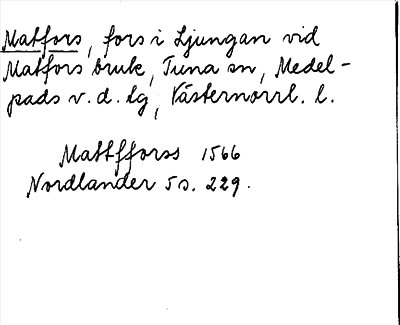 Matfors, fors i Ljungan vid
Matfors bruk, Tuna sn, Medel-
pads v. d. lg, Västernorrl. l.
Mattfforss 1566
Nordlander 5 s. 229.